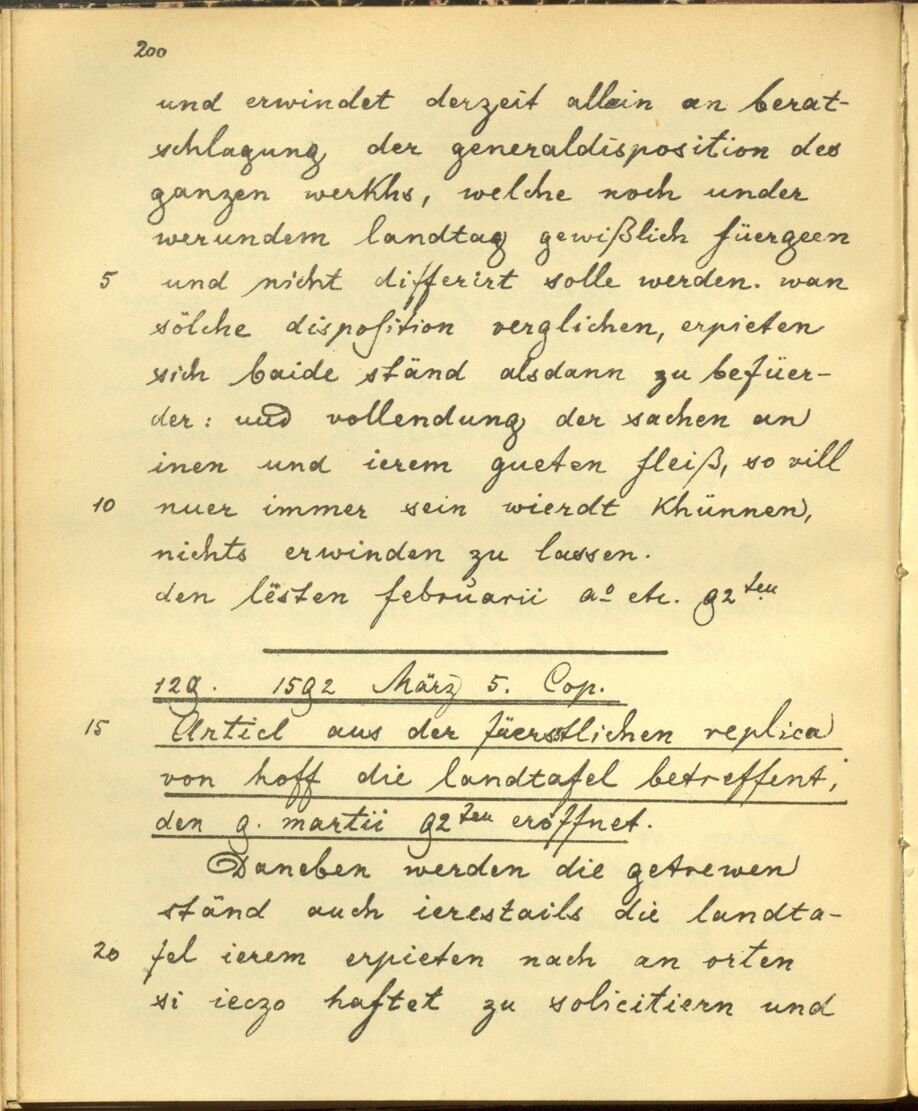 200
und erwindet derzeit allein an berat-
schlagung der generaldisposition des
ganzen werkhs, welche noch under
werundem landtag gewißlich füergeen
5 und nicht differirt solle werden. wan
sölche disposition verglichen, erpieten
sich baide ständ alsdann zu befüer-
der: und vollendung der sachen an
inen und ierem gueten fleiß, so vill
10 nuer immer sein wierdt khünnen,
nichts erwinden zu lassen.
den lësten februarii aº etc. 92ten
129. 1592 März 5. Cop.
15 Articl aus der füerstlichen replica
von hoff die landtafel betreffent,
den 9. martii 92ten eröffnet.
Daneben werden die getrewen
ständ auch ierestails die landta-
20 fel ierem erpieten nach an orten
si ieczo haftet zu solicitiern und